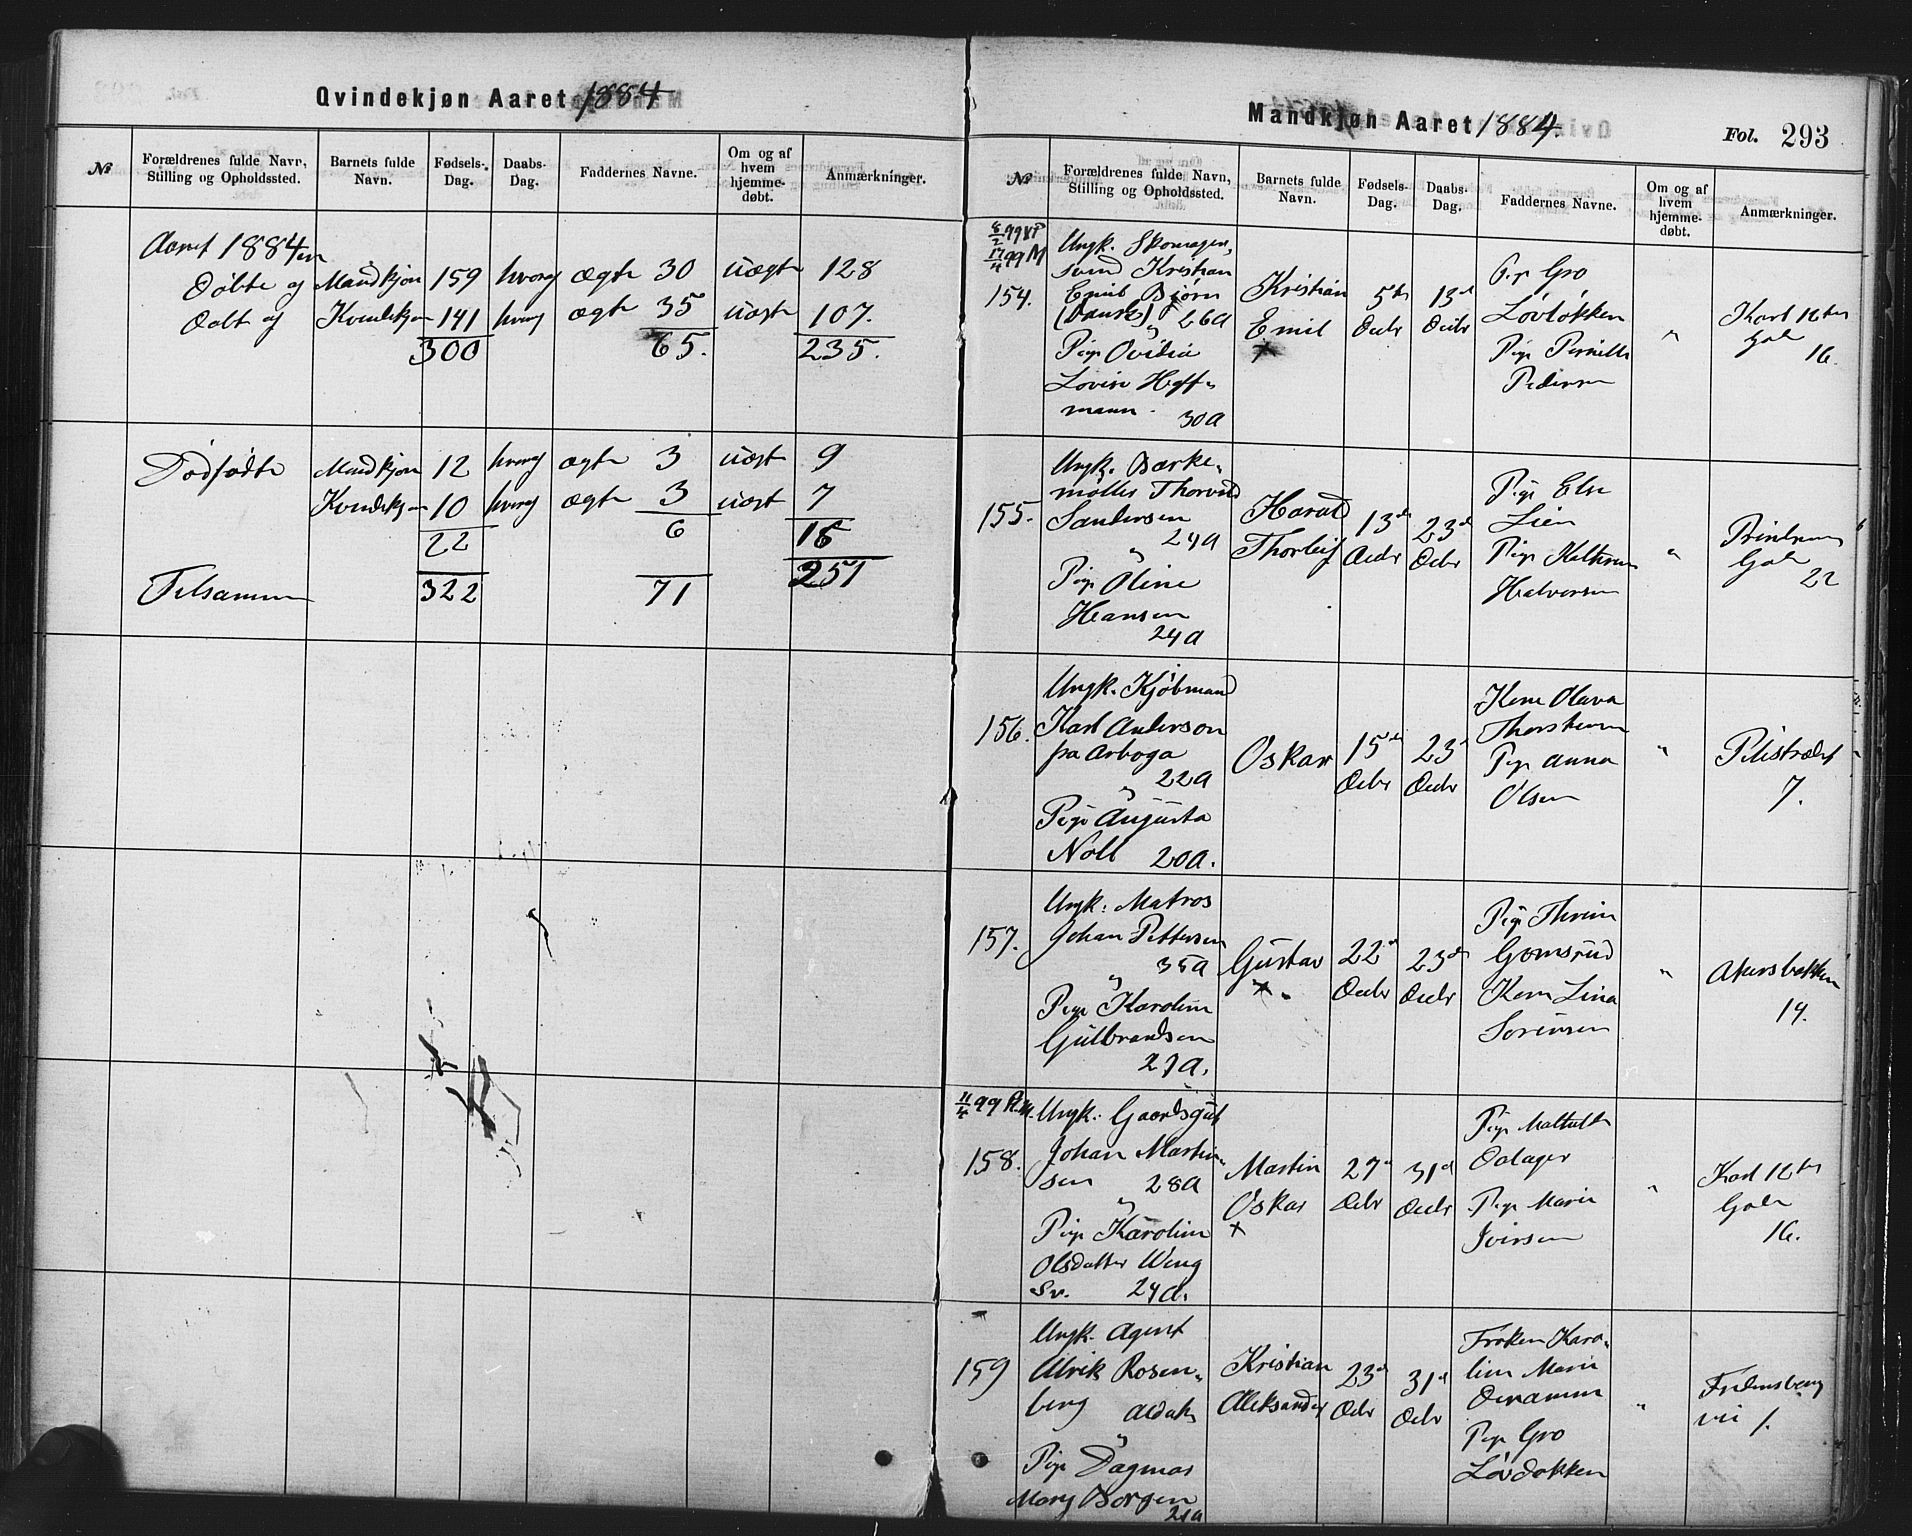 Qvindekjøn Aaret 1884
№
Forældrenes fulde Navn, Stilling og Opholdssted.
Barnets fulde Navn.
Fødsels-Dag.
Daabs-Dag.
Faddernes Navne.
Om og af hvem hjemme-døbt.
Anmærkninger.
Aaret 1884 er
Døbte af Mandkjøn 159 hvoraf ægte 30 uægte 128
Døbt af Kvindekjøn 141 hvoraf ægte 35 uægte 107.
300 65. 235.
Dødfødte Mandkjøn 12 hvoraf ægte 3 uægt 9
Kvindekjøn 10 hvoraf ægte 3 uægt 7
22 6 16
Tilsammen 322 71 251
Mandkjøn Aaret 1884.
Fol. 293
№
Forældrenes fulde Navn, Stilling og Opholdssted.
Barnets fulde Navn.
Fødsels-Dag.
Daabs-Dag.
Faddernes Navne.
Om og af hvem hjemme-døbt.
Anmærkninger.
154.
Ungk. Skomager-
svend Kristian
Emil Bjørn
(Dansk) 26 A
"
Pige Ovidia
Lovise Hoff-
mann. 30 A
Kristian
Emil
×
5te
Decbr
13de
Decbr
Pige Gro
Løvløkken
Pige Pernille
Pedersen
"
Karl 12tes
Gade
16.
155.
Ungk. Barke-
møller Thorvald
Sandersen
24 A
"
Pige Oline
Hansen
24 A
Harald
Thorleif
13de
Decbr
23de
Decbr
Pige Else
Lien
Pige Kathrine
Halvorsen
"
Prindsens
Gade
22
156.
Ungk. Kjøbmand
Karl Anderson
fra Arboga
22 A
"
Pige Augusta
Noll 20 A.
Oskar
15de
Decbr
23de
Decbr
Kone Olava
Thorstensen
Pige Anna
Olsen
"
Pilestrædet
7.
157.
Ungk. Matros
Johan Pettersen
35 A
"
Pige Karoline
Gulbrandsen
27 A.
Gustav
×.
22de
Decbr
23de
Decbr
Pige Thrine
Gomsrud
Kone Lina
Sørensen
"
Akersbakken
14.
11/4 99 Pt.M.
158.
Ungk. Gaardsgut
Johan Martin-
sen 28 A
"
Pige Karoline
Olsdatter Weng
Sv. 24 A.
Martin
Oskar
×
27de
Decbr
31de
Decbr
Pige Mathilde
Odager
Pige Marie
Iversen
"
Karl 12tes
Gade
16.
159
Ungk. Agent
Ulrik Rosen-
berg
"
Pige Dagmar
Mary Borgen
21 A
Kristian
Aleksander
23de
Decbr
31de
Decbr
Frøken Karo-
line Marie
Pige Gro
Løvdokken
"
Fredensborg
vei 1.